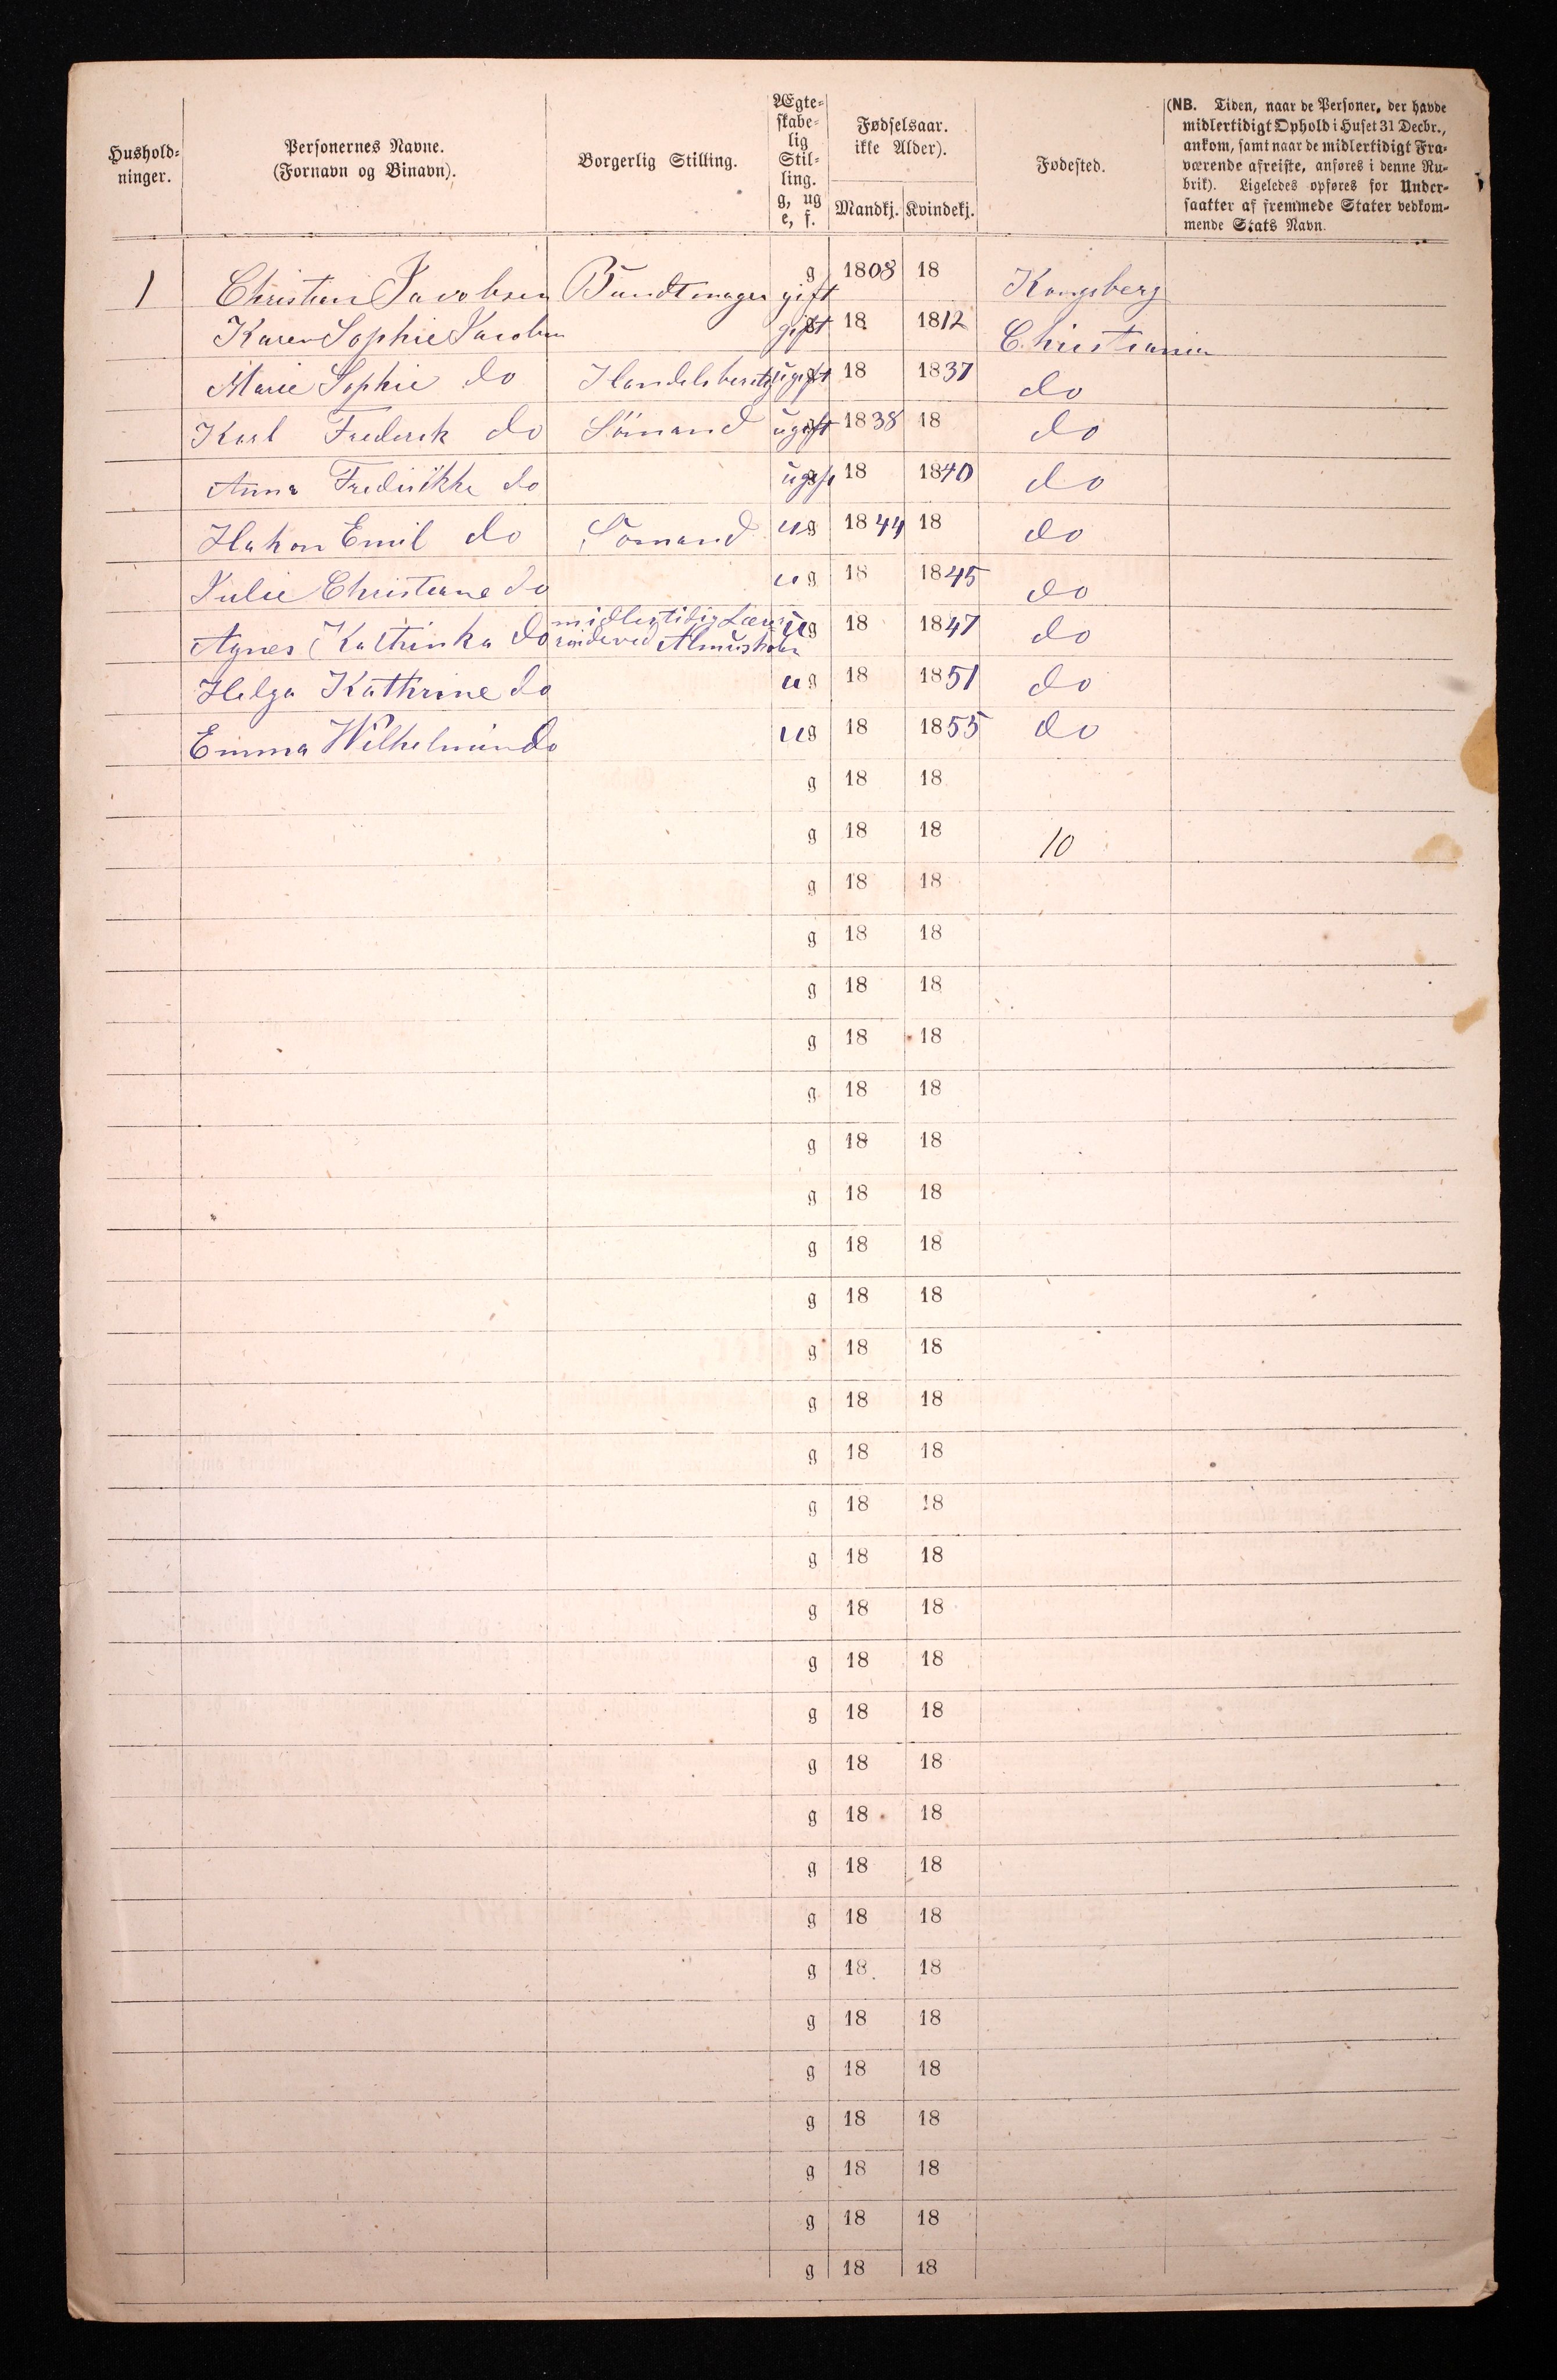 Hushold-
ninger.
Personernes Navne.
(Fornavn og Binavn).
Borgerlig Stilling.
Ægte-
skabe-
lig
Stil-
ling.
g, ug
e, f.
Fødselsaar.
ikke Alder).
Mandkj. Kvindekj.
Fødested.
(NB. Tiden, naar de Personer, der havde
midlertidigt Ophold i Huset 31 Decbr.,
ankom, samt naar de midlertidigt Fra-
værende afreiste, anføres i denne Ru-
brik). Ligeledes opføres for Under-
saatter af fremmede Stater vedkom-
mende Stats Navn.
1 Christian Jacobsen Bundtmager gift 1808 18 Kongsberg
Karen Sophie Jacobsen gift 18 1812 Christiania
Marie Sophie do ugift 18 1837 do
Karl Frederik do Sömand ugift 1838 18 do
Anna Fredrikke do ugift 18 1840 do
Hakon Emil do Sömand ug 1844 18 do
Julie Christiane do ug 18 1845 do
midlertidig Lære-
Agnes Kathinka do rinde ved Almuskolen ug 18 1847 do
Helga Kathrine do ug 18 1851 do
Emma Wilhelmin do ug 18 1855 do
g 18 18
g 18 18 10
g 18 18
g 18 18
g 18 18
g 18 18
g 18 18
g 18 18
g 18 18
g 18 18
g 18 18
g 18 18
g 18 18
g 18 18
g 18 18
g 18 18
g 18 18
g 18 18
g 18 18
g 18 18
g 18 18
g 18 18
g 18 18
g 18 18
g 18 18
g 18 18
g 18 18
g 18 18
g 18 18
g 18 18